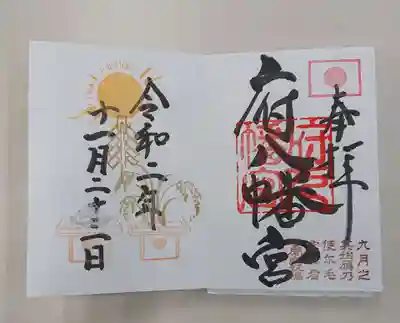 奉拝
府八幡宮
九月之
使尓毛
令和二年
十一月二十三日